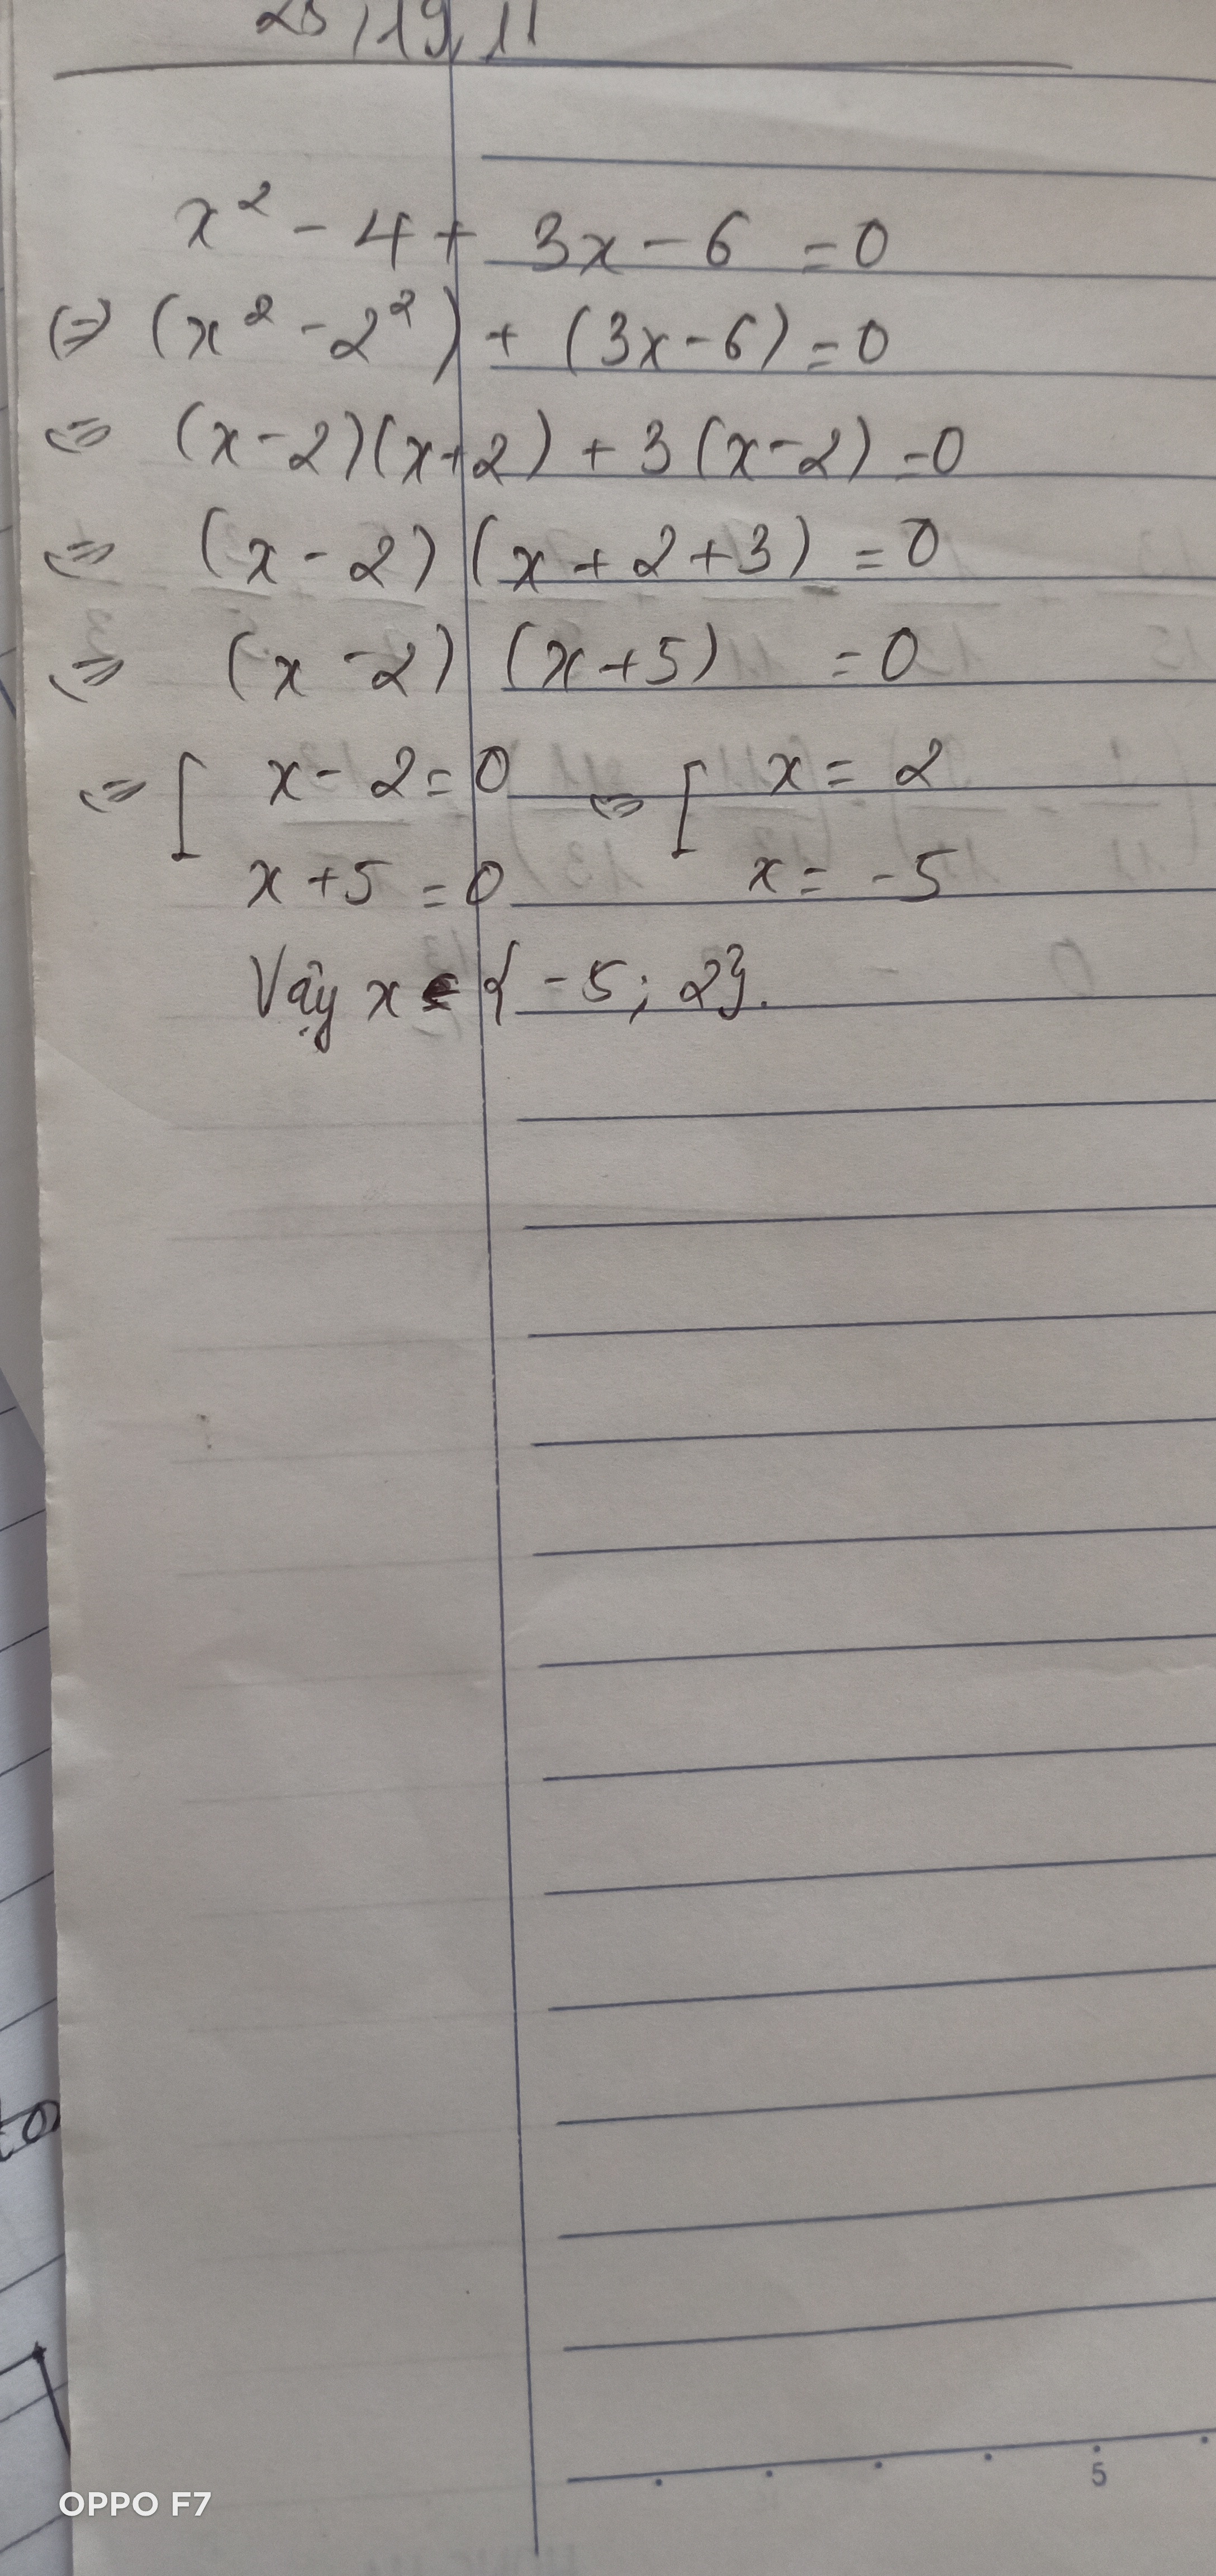 x² - 4 + 3x - 6 = 0
(=) (x² - 2²) + (3x - 6) = 0
<=> (x - 2)(x + 2) + 3(x - 2) = 0
<=> (x - 2)(x + 2 + 3) = 0
<=> (x - 2)(x + 5) = 0
<=> [ x - 2 = 0 <=> [ x = 2
x + 5 = 0 x = -5
Vậy x ∈ { -5; 2}.
5
OPPO F7